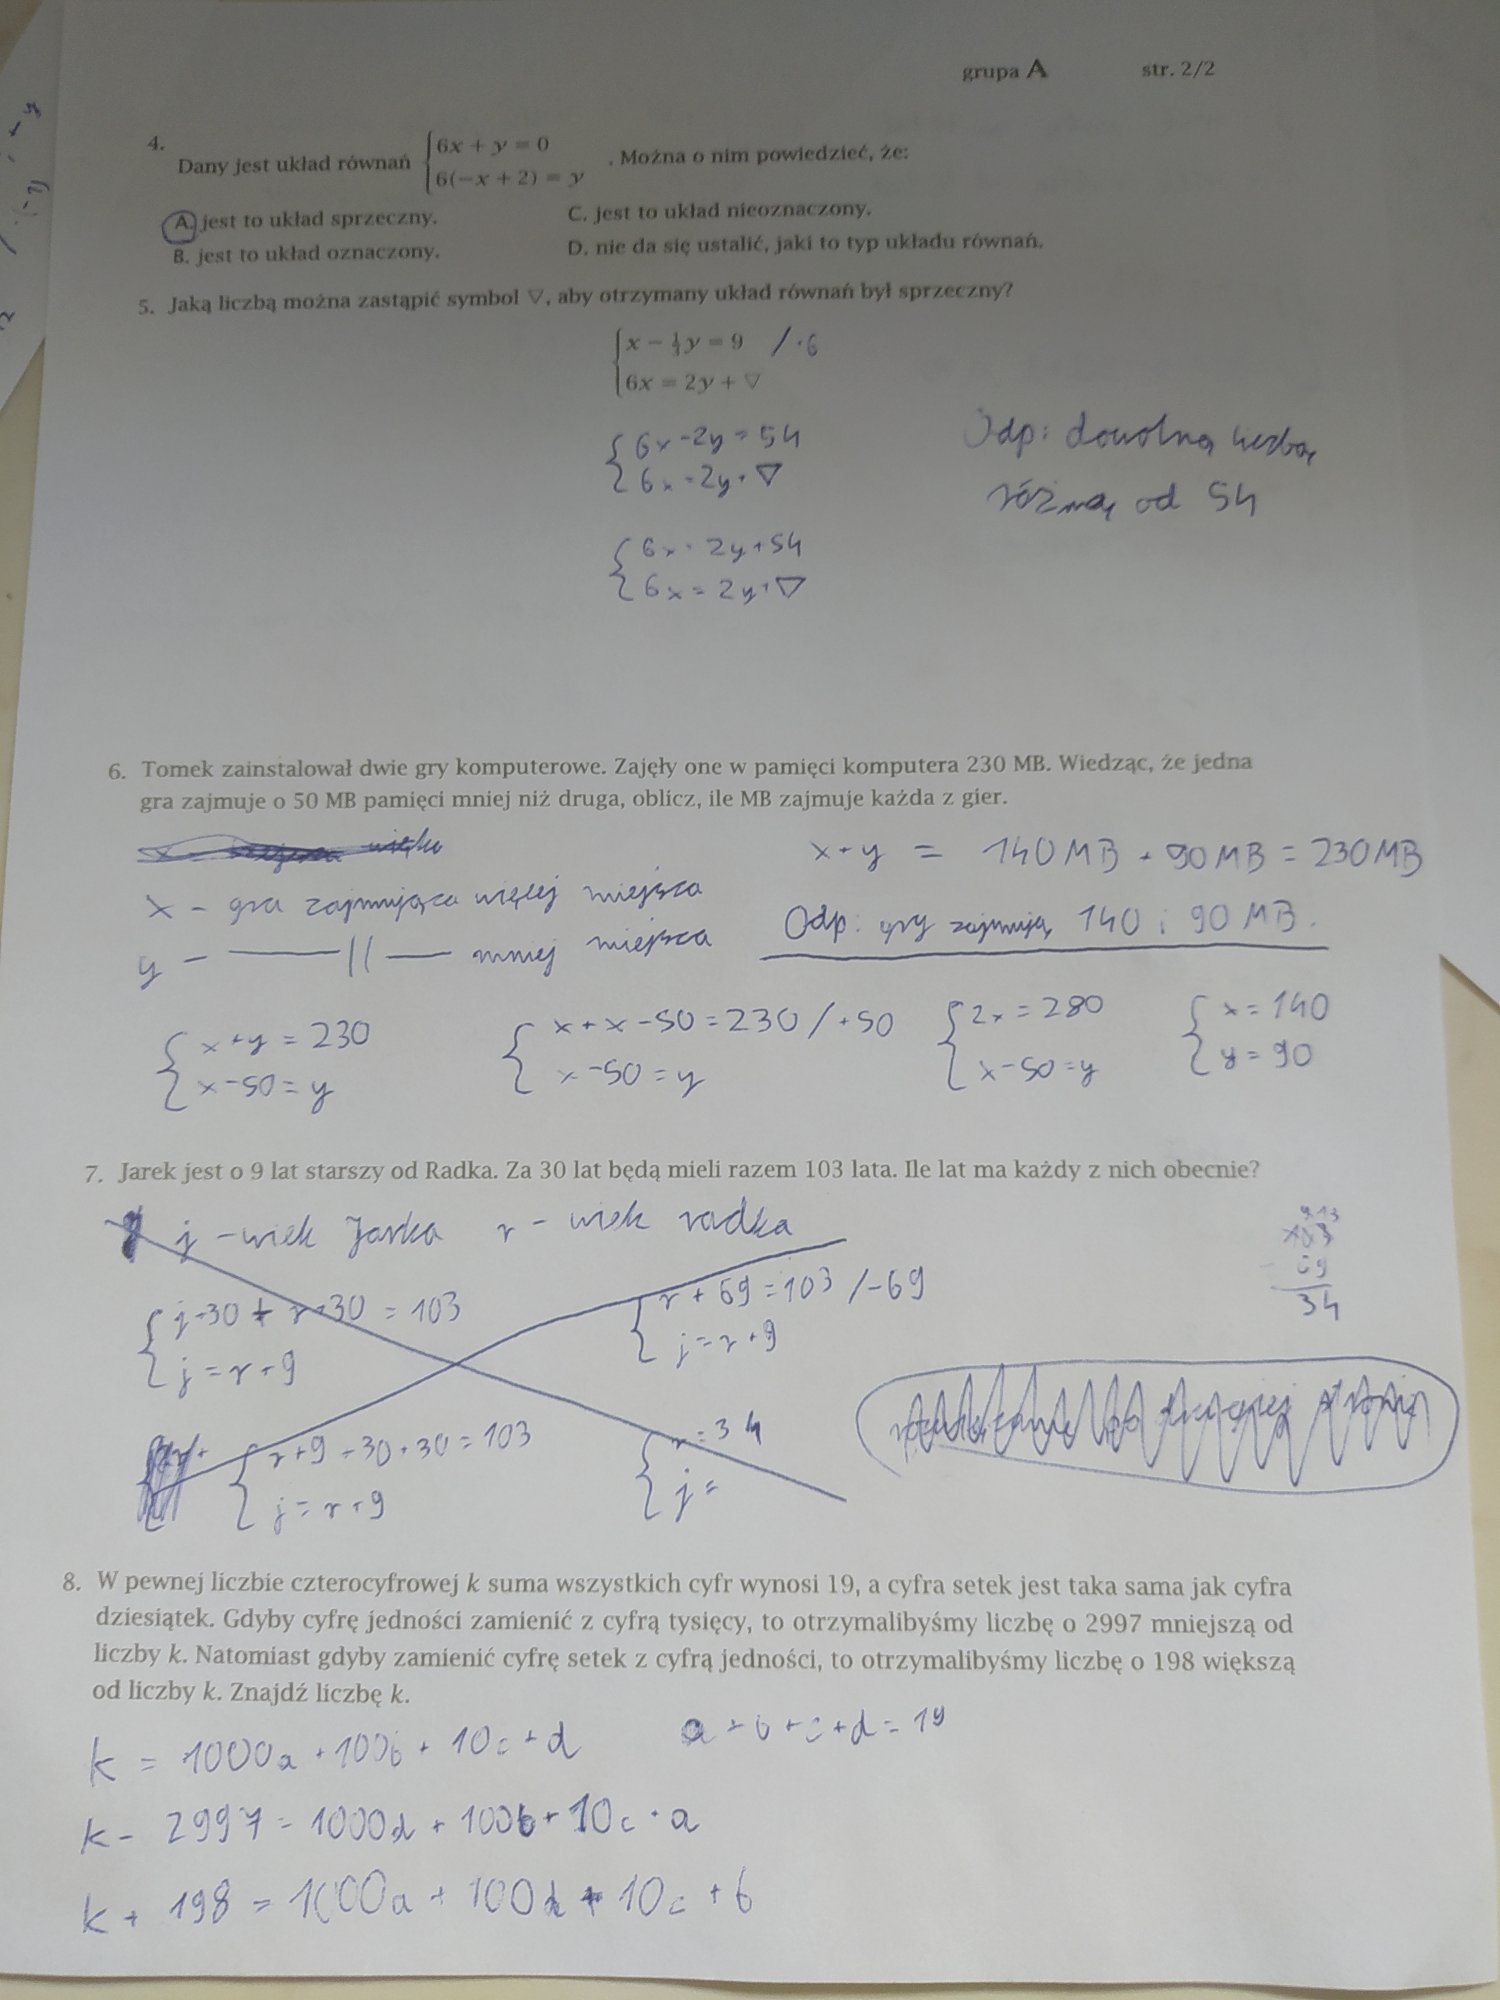 grupa A str. 2/2
4.
Dany jest układ równań { 6x + y = 0
6(−x + 2) = y . Można o nim powiedzieć, że:
A. jest to układ sprzeczny. C. jest to układ nieoznaczony.
B. jest to układ oznaczony. D. nie da się ustalić, jaki to typ układu równań.
5. Jaką liczbą można zastąpić symbol ▽, aby otrzymany układ równań był sprzeczny?
x − 1/3 y = 9 / ·6
6x = 2y + ▽
6x - 2y = 54
6x = 2y + ▽
Odp: dowolną liczbą
różną od 54
6x = 2y + 54
6x = 2y + ▽
6. Tomek zainstalował dwie gry komputerowe. Zajęły one w pamięci komputera 230 MB. Wiedząc, że jedna
gra zajmuje o 50 MB pamięci mniej niż druga, oblicz, ile MB zajmuje każda z gier.
x + y = 140 MB + 90 MB = 230 MB
x - gra zajmująca więcej miejsca
y - —||— mniej miejsca
Odp: gry zajmują 140 i 90 MB.
x + y = 230
x - 50 = y
x + x - 50 = 230 / +50
x - 50 = y
2x = 280
x - 50 = y
x = 140
y = 90
7. Jarek jest o 9 lat starszy od Radka. Za 30 lat będą mieli razem 103 lata. Ile lat ma każdy z nich obecnie?
j - wiek Jarka r - wiek radka
j + 30 + r + 30 = 103
j = r + 9
r + 69 = 103 / -69
j = r + 9
103
69
34
r + 9 + 30 + 30 = 103
j = r + 9
r = 34
j =
8. W pewnej liczbie czterocyfrowej k suma wszystkich cyfr wynosi 19, a cyfra setek jest taka sama jak cyfra
dziesiątek. Gdyby cyfrę jedności zamienić z cyfrą tysięcy, to otrzymalibyśmy liczbę o 2997 mniejszą od
liczby k. Natomiast gdyby zamienić cyfrę setek z cyfrą jedności, to otrzymalibyśmy liczbę o 198 większą
od liczby k. Znajdź liczbę k.
k = 1000a + 100b + 10c + d a + b + c + d = 19
k - 2997 = 1000d + 100b + 10c + a
k + 198 = 1000a + 100d + 10c + b